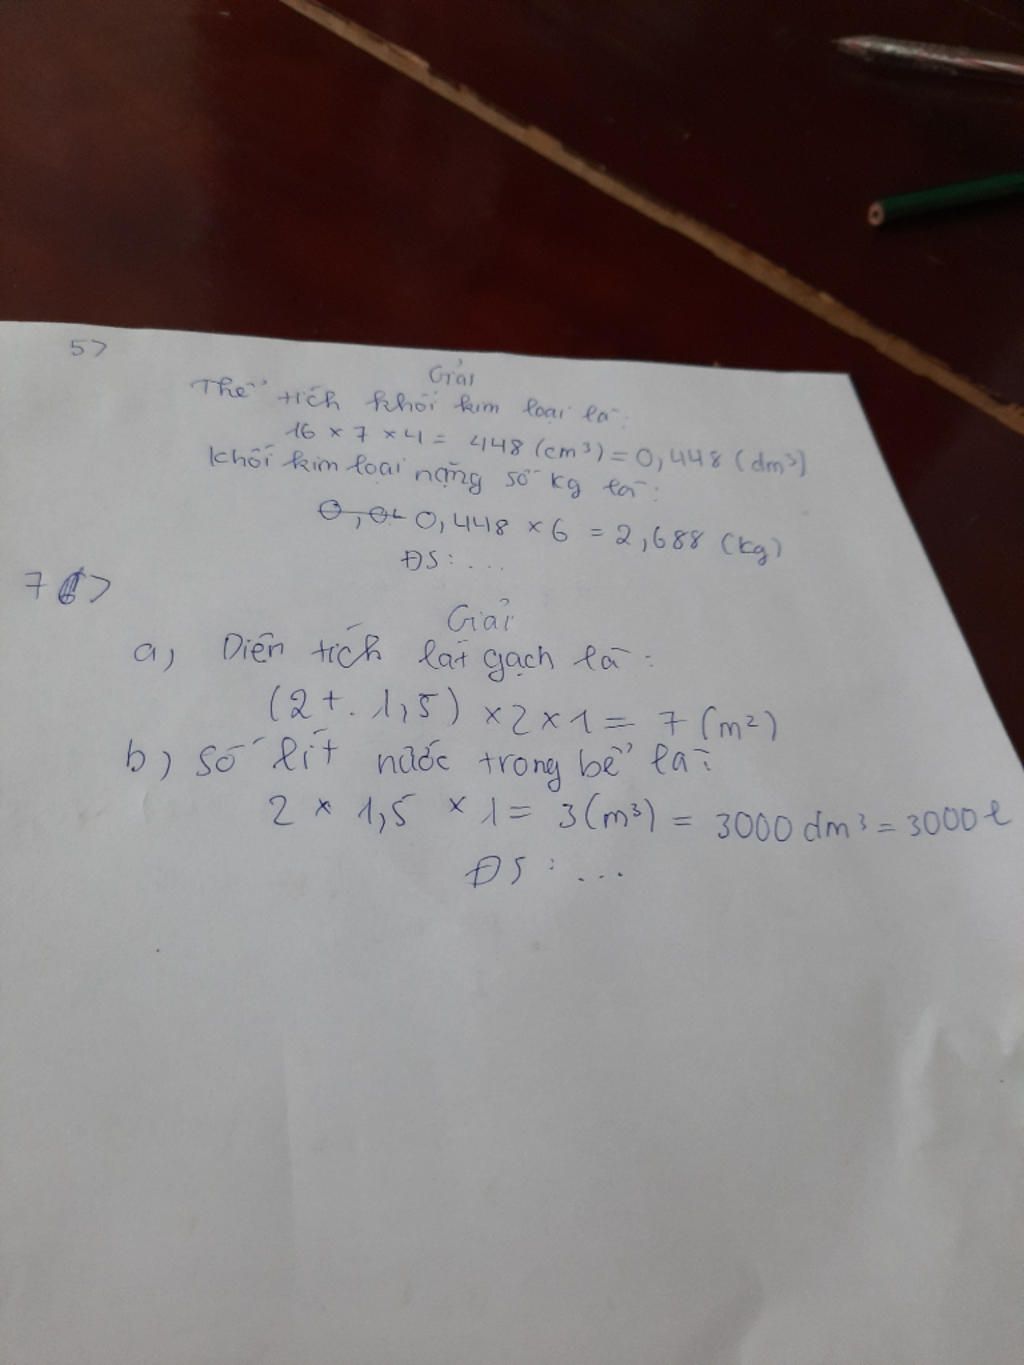 5>
Giải
Thể tích khối kim loại là:
16 × 7 × 4 = 448 (cm³) = 0,448 (dm³)
Khối kim loại nặng số kg là:
0,448 × 6 = 2,688 (kg)
ĐS: ...
7>
Giải
a, Diện tích lát gạch là:
(2 + . 1,5) × 2 × 1 = 7 (m²)
b) Số lít nước trong bể là:
2 × 1,5 × 1 = 3 (m³) = 3000 dm³ = 3000 l
ĐS: ...